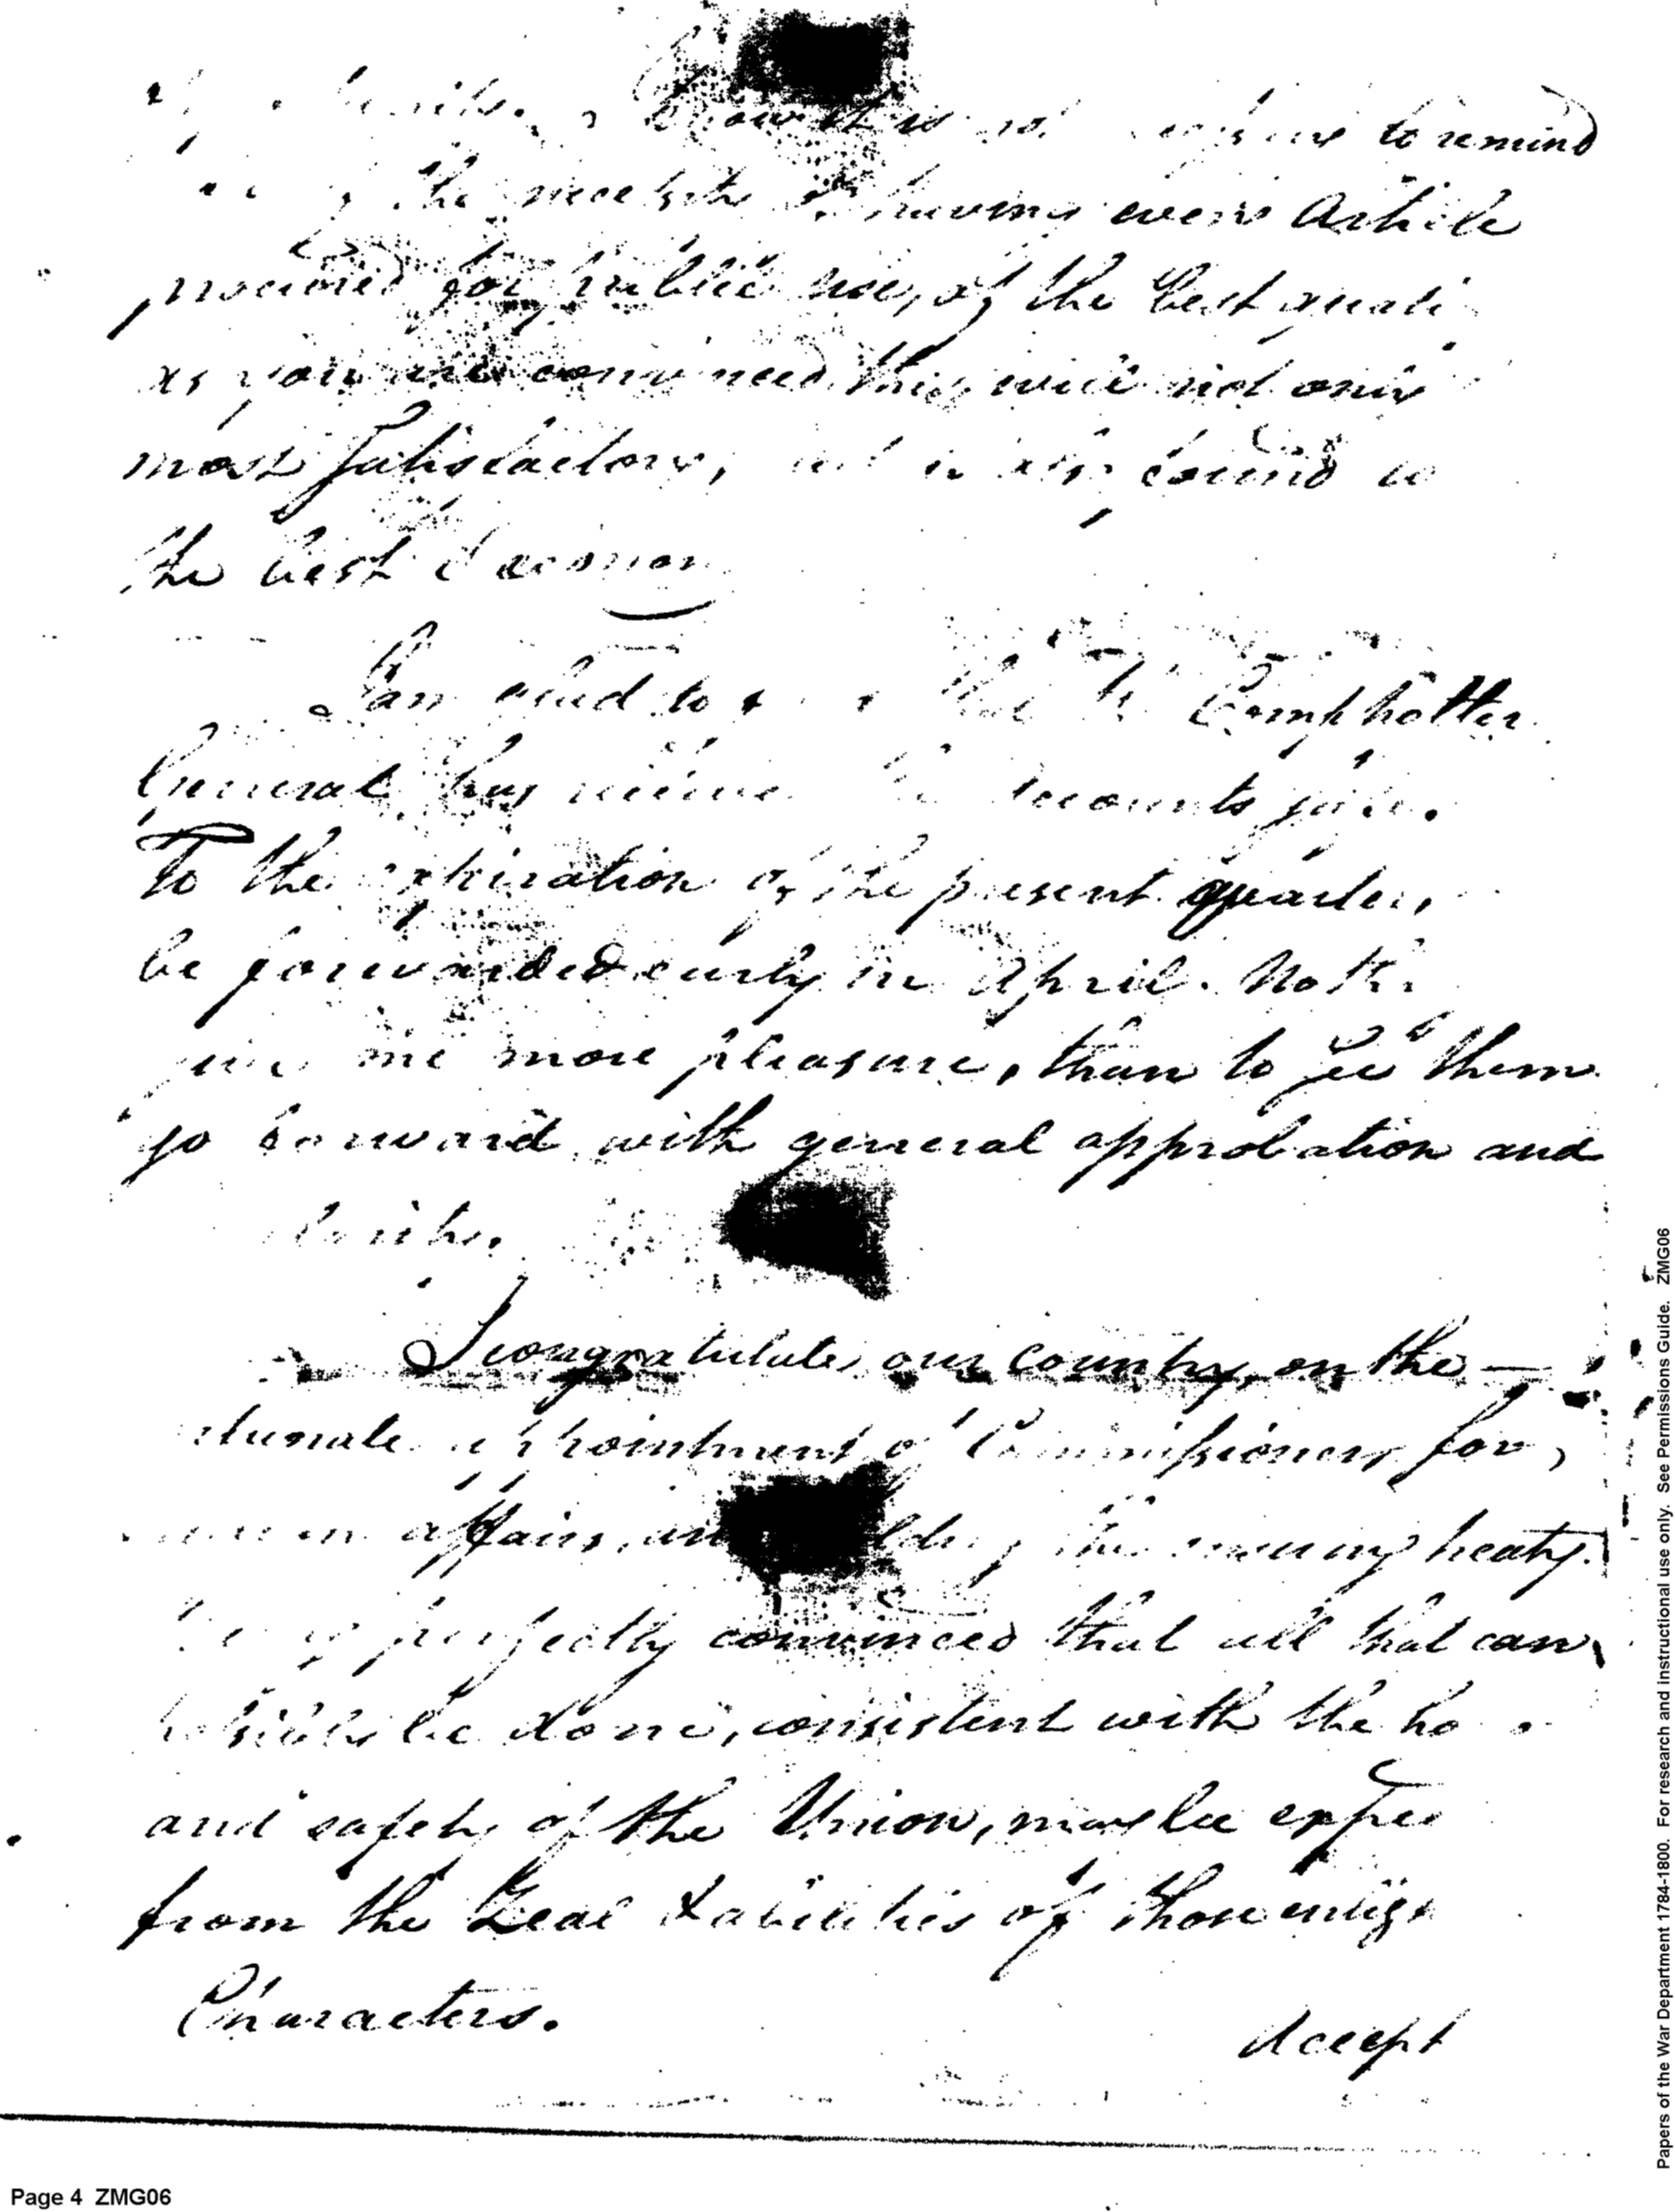 it is to remind
the necessity of having every Article
procured for public use, of the best quali
as you are convinced this will not only
most Satisfactory, but is also found to
the best Œconomy
I am glad to that the Comphotter
General has accounts
To the expiration of the present quarter,
be forwarded early in April. Noth
give me more pleasure, than to See them
go forward with general approbation and

I congratulate our country, on the —
appointment of Commissioners for
affairs, treaty.
perfectly convinced that all that can
possibly be done, consistent with the ho
and safety of the Union, may be expec
from the Zeal & abilities of those enlig
Characters.
Accept
Page 4 ZMG06
Papers of the War Department 1784-1800. For research and instructional use only. See Permissions Guide. ZMG06